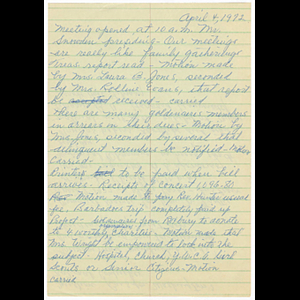 April 4, 1972
Meeting opened at 10 a.m. Mr.
Snowden presiding - Our meetings
are really like family gatherings
Treas. report read - Motion made
by Mrs. Laura B. Jones, seconded
by Mrs. Rollins Evans, that report
be accepted received - carried
There are many goldenaires members
in arrears in their dues - Motion by
Mrs Jones, seconded by several that
delinquent members be notified -
Carried -
Printers to be paid when bill
arrives - Receipts of concert
Motion made to pay Rev. Hunter usual
fee. Barbados trip completely paid up
report - from Roxbury to donate
to 4 worthy charities - Motion made that
Mrs. Wright be empowered to look into the
subject. Hospital, Church, Y.W.C.A. Girl
Scouts or Senior Citizens - Motion
carried